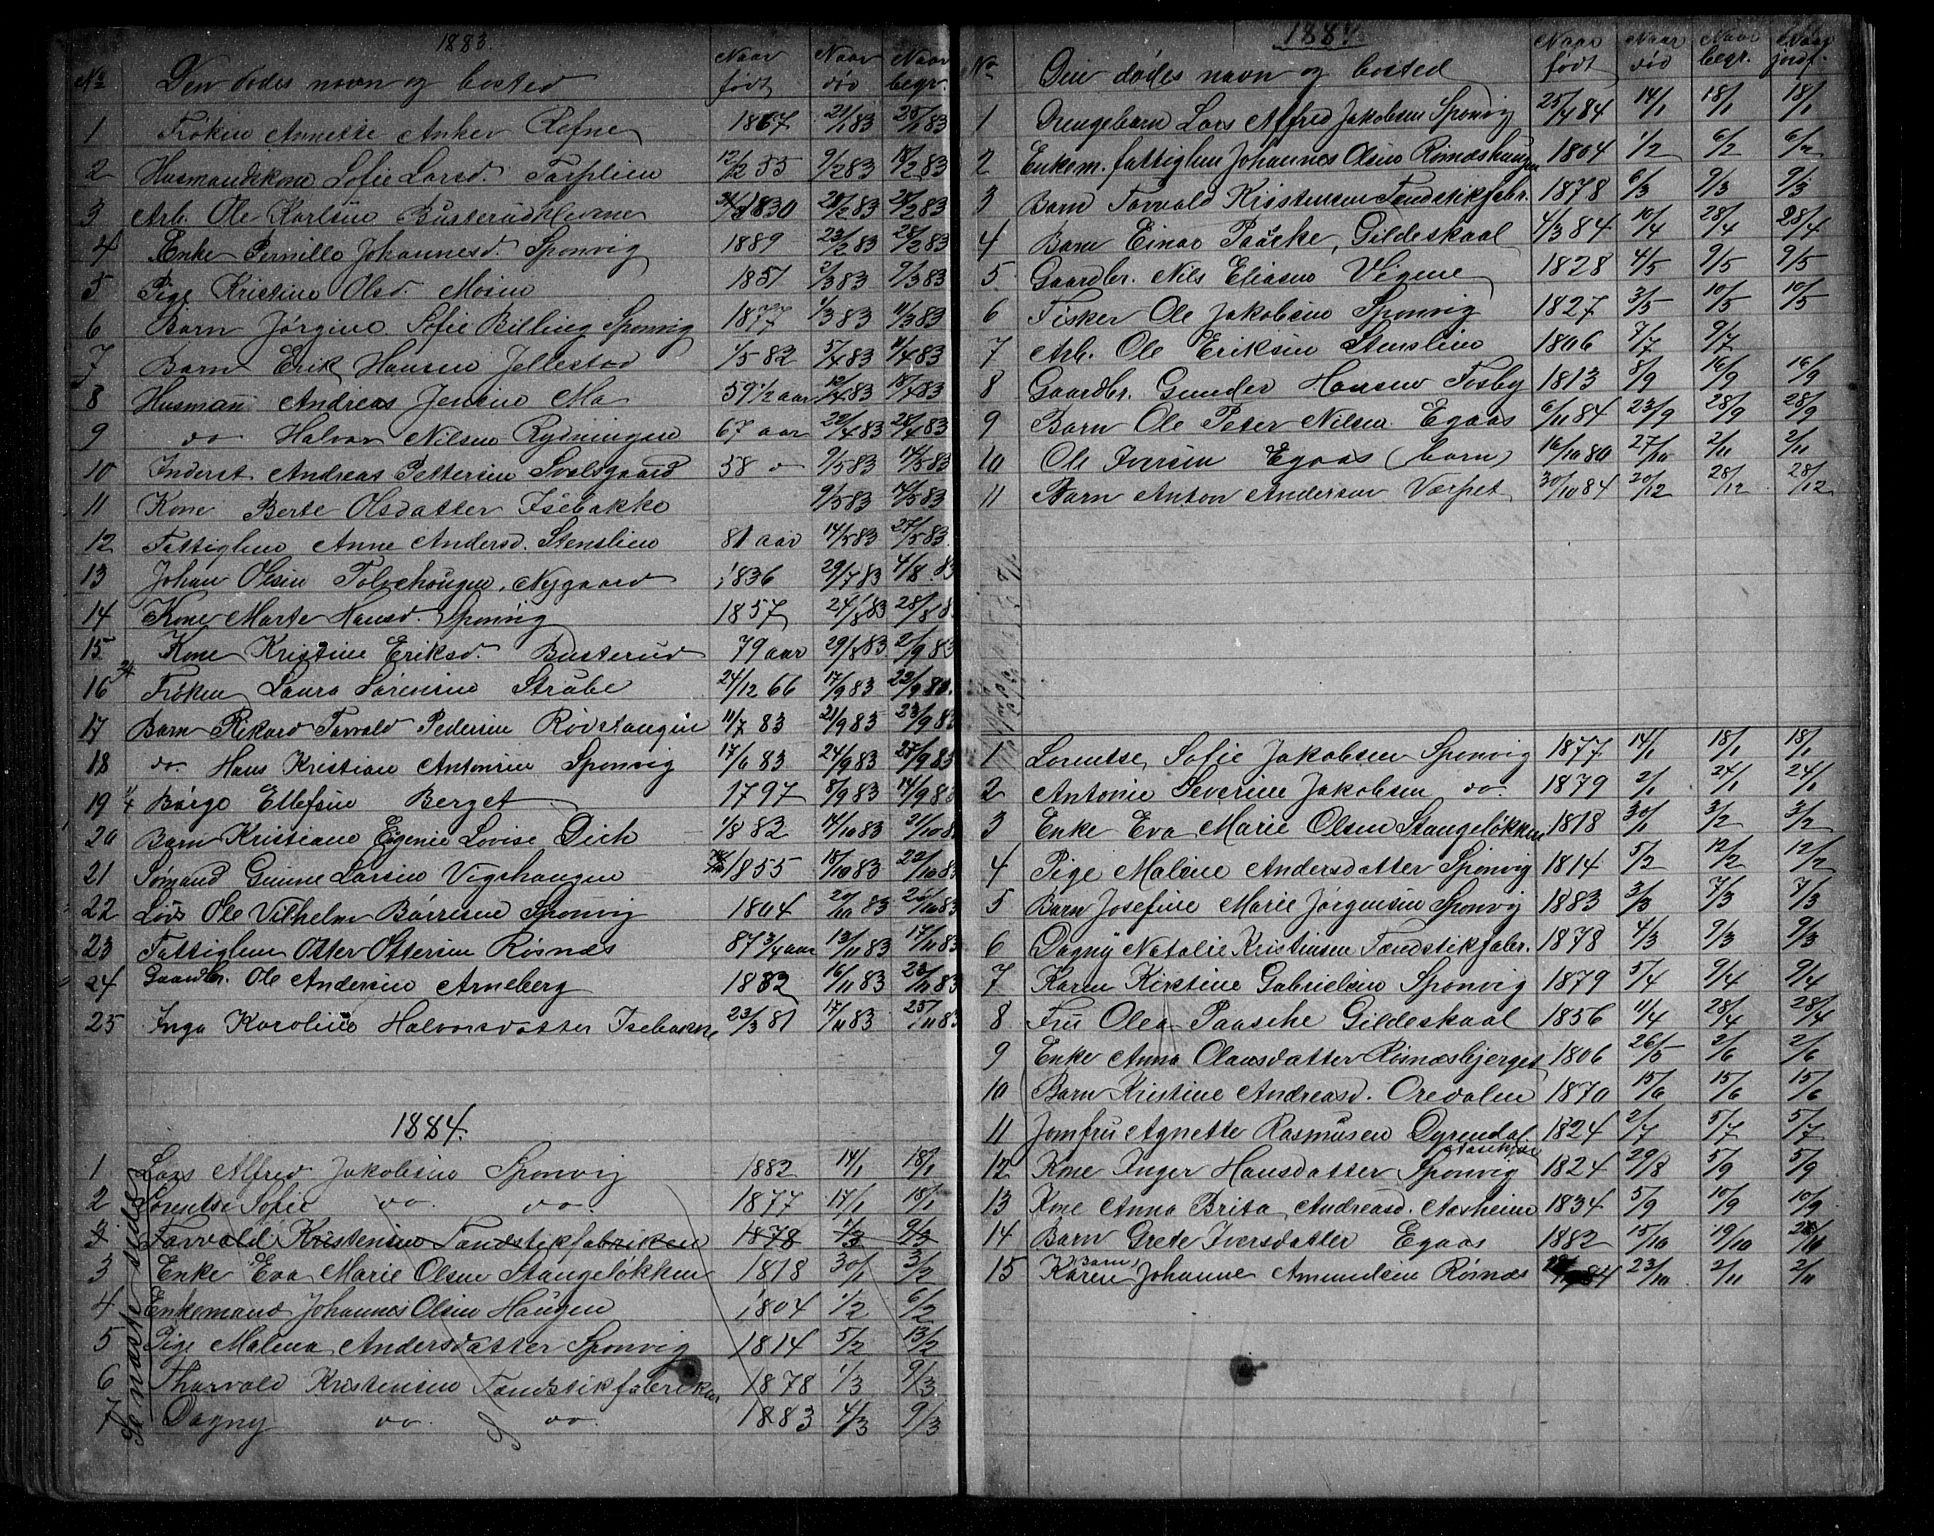 1883.
No Den dødes navn og bosted Naar født Naar død Naar begr.
1 Frøken Annette Anker Refne 1867 21/1 83 25/1 83
2 Husmandskone Sofie Larsd. Torplien 12/2 55 9/2 83 18/2 83
3 Arb. Ole Karlsen Busterud 1830 20/2 83 28/2 83
4 Enke Pernille Johannesd. Sponvig 1889 23/2 83 28/2 83
5 Pige Kristine Olsd. Moen 1851 2/3 83 9/3 83
6 Barn Jørgine Sofie Billing Sponvig 1877 1/3 83 11/3 83
7 Barn Erik Hansen Jellestad 1/5 82 5/4 83 11/4 83
8 Husman Andreas Jensen Ma 59 1/2 aar 12/4 83 18/4 83
9 do Halvor Nilsen Rydningen 67 aar 22/4 83 28/4 83
10 Inderst. Andreas Pettersen Svalsgaard 58 o 9/5 83 14/5 83
11 Kone Berte Olsdatter Isebakke 9/5 83 17/5 83
12 Fattiglem Anne Andersd. Stenslien 81 aar 14/5 83 27/5 83
13 Johan Olsen Tolvehougen, Nygaard 1836 29/7 83 4/8 83
14 Kone Marte Hansd. Sponvig 1857 24/8 83 28/8 83
15 Kone Kristine Eriksd. Busterud 79 aar 29/8 83 2/9 83
16 Frøken Laura Sørensen Strube 24/12 66 17/9 83 22/9 83
17 Barn Rikard Torvald Pedersen Rødstangen 11/7 83 21/9 83 23/9 83
18 do. Hans Kristian Antonsen Sponvig 17/6 83 24/9 83 27/9 83
19 Børge Ellefsen Berget 1797 8/9 83 14/9 83
20 Barn Kristiane Eugenie Lovise Dick 1/8 82 17/10 83 21/10 83
21 Sømand Gunne Larsen Vigshaugen 1855 18/10 83 22/10 83
22 Lods Ole Vilhelm Børresen Sponvig 1804 20/10 83 26/10 83
23 Fattiglem Otter Ottersen Røsnæs 87 3/4 aar 13/11 83 17/11 83
24 Gaardbr. Ole Andersen Arneberg 1882 16/11 83 23/11 83
25 Inga Karoline Halvorsdatter Isebakke 23/3 81 17/11 83 25/11 83
1884.
Se næste side
1 Lars Alfred Jakobsen Sponvig 1882 14/1 18/1
2 Lorentse Sofie do do 1877 17/1 18/1
3 Torvald Kristensen Tændstikfabriken 1878 1/3 9/3
3 Enke Eva Marie Olsen Stangeløkken 1818 30/1 3/2
4 Enkemand Johannes Olsen Haugen 1804 1/2 6/2
5 Pige Malena Andersdatter Sponvig 1814 5/2 13/2
6 Thorvald Kristensen Tændstikfabriken 1878 1/3 9/3
7 Dagny do. do. 1883 4/3 9/3
1884
No. Den dødes navn og bosted Naar født Naar død Naar begr. Naar jordf.
1 Drengebarn Lars Alfred Jakobsen Sponvig 25/4 84 14/1 18/1 18/1
2 Enkem. fattiglem Johannes Olsen Røsnæshaugen 1804 1/2 6/2 6/2
3 Barn Torvald Kristensen Tændstikfabr. 1878 6/3 9/3 9/3
4 Barn Einar Paaske, Gildeskaal 4/3 84 10/4 28/4 28/4
5 Gaardbr. Nils Eliasen Vigene 1828 4/5 9/5 9/5
6 Fisker Ole Jakobsen Sponvig 1827 3/5 10/5 10/5
7 Arb. Ole Eriksen Stenslien 1806 7/7 9/7
8 Gaardbr. Gunder Hansen Fosby 1813 8/9 16/9 16/9
9 Barn Ole Peter Nilsen Egaas 6/11 84 23/9 28/9 28/9
10 Ole Iversen Egaas (barn) 16/10 80 27/10 2/11 2/11
11 Barn Anton Andersen Værpet 30/10 84 20/12 28/12 28/12
1 Lorentse Sofie Jakobsen Sponvig 1877 14/1 18/1 18/1
2 Antonie Severine Jakobsen do. 1879 2/1 24/1 24/1
3 Enke Eva Marie Olsen Stangeløkken 1818 30/1 3/2 3/2
4 Pige Malene Andersdatter Sponvig 1814 5/2 12/2 12/2
5 Barn Josefine Marie Jørgensen Sponvig 1883 3/3 7/3 7/3
6 Dagny Natalie Kristensen Tændstikfabr. 1878 4/3 9/3 9/3
7 Karen Kirstine Gabrielsen Sponvig 1879 5/4 9/4 9/4
8 Fru Olea Paasche Gildeskaal 1856 11/4 28/4 28/4
9 Enke Anna Olausdatter Røsnæsbjerget 1806 26/5 2/6 2/6
10 Barn Kristine Andreasd. Oredalen 1870 15/6 15/6 15/6
11 Jomfru Agnette Rasmusen Dyrendal 1824 2/7 5/7 5/7
12 Kone Inger Hansdatter Sponvig 1824 29/8 5/9 5/9
13 Kone Anna Brita Andreasd. Aasheim 1834 5/9 10/9 10/9
14 Barn Grete Iversdatter Egaas 1882 15/10 19/10
15 Barn Karen Johanne Amundsen Røsnæs 84 23/10 2/11 2/11